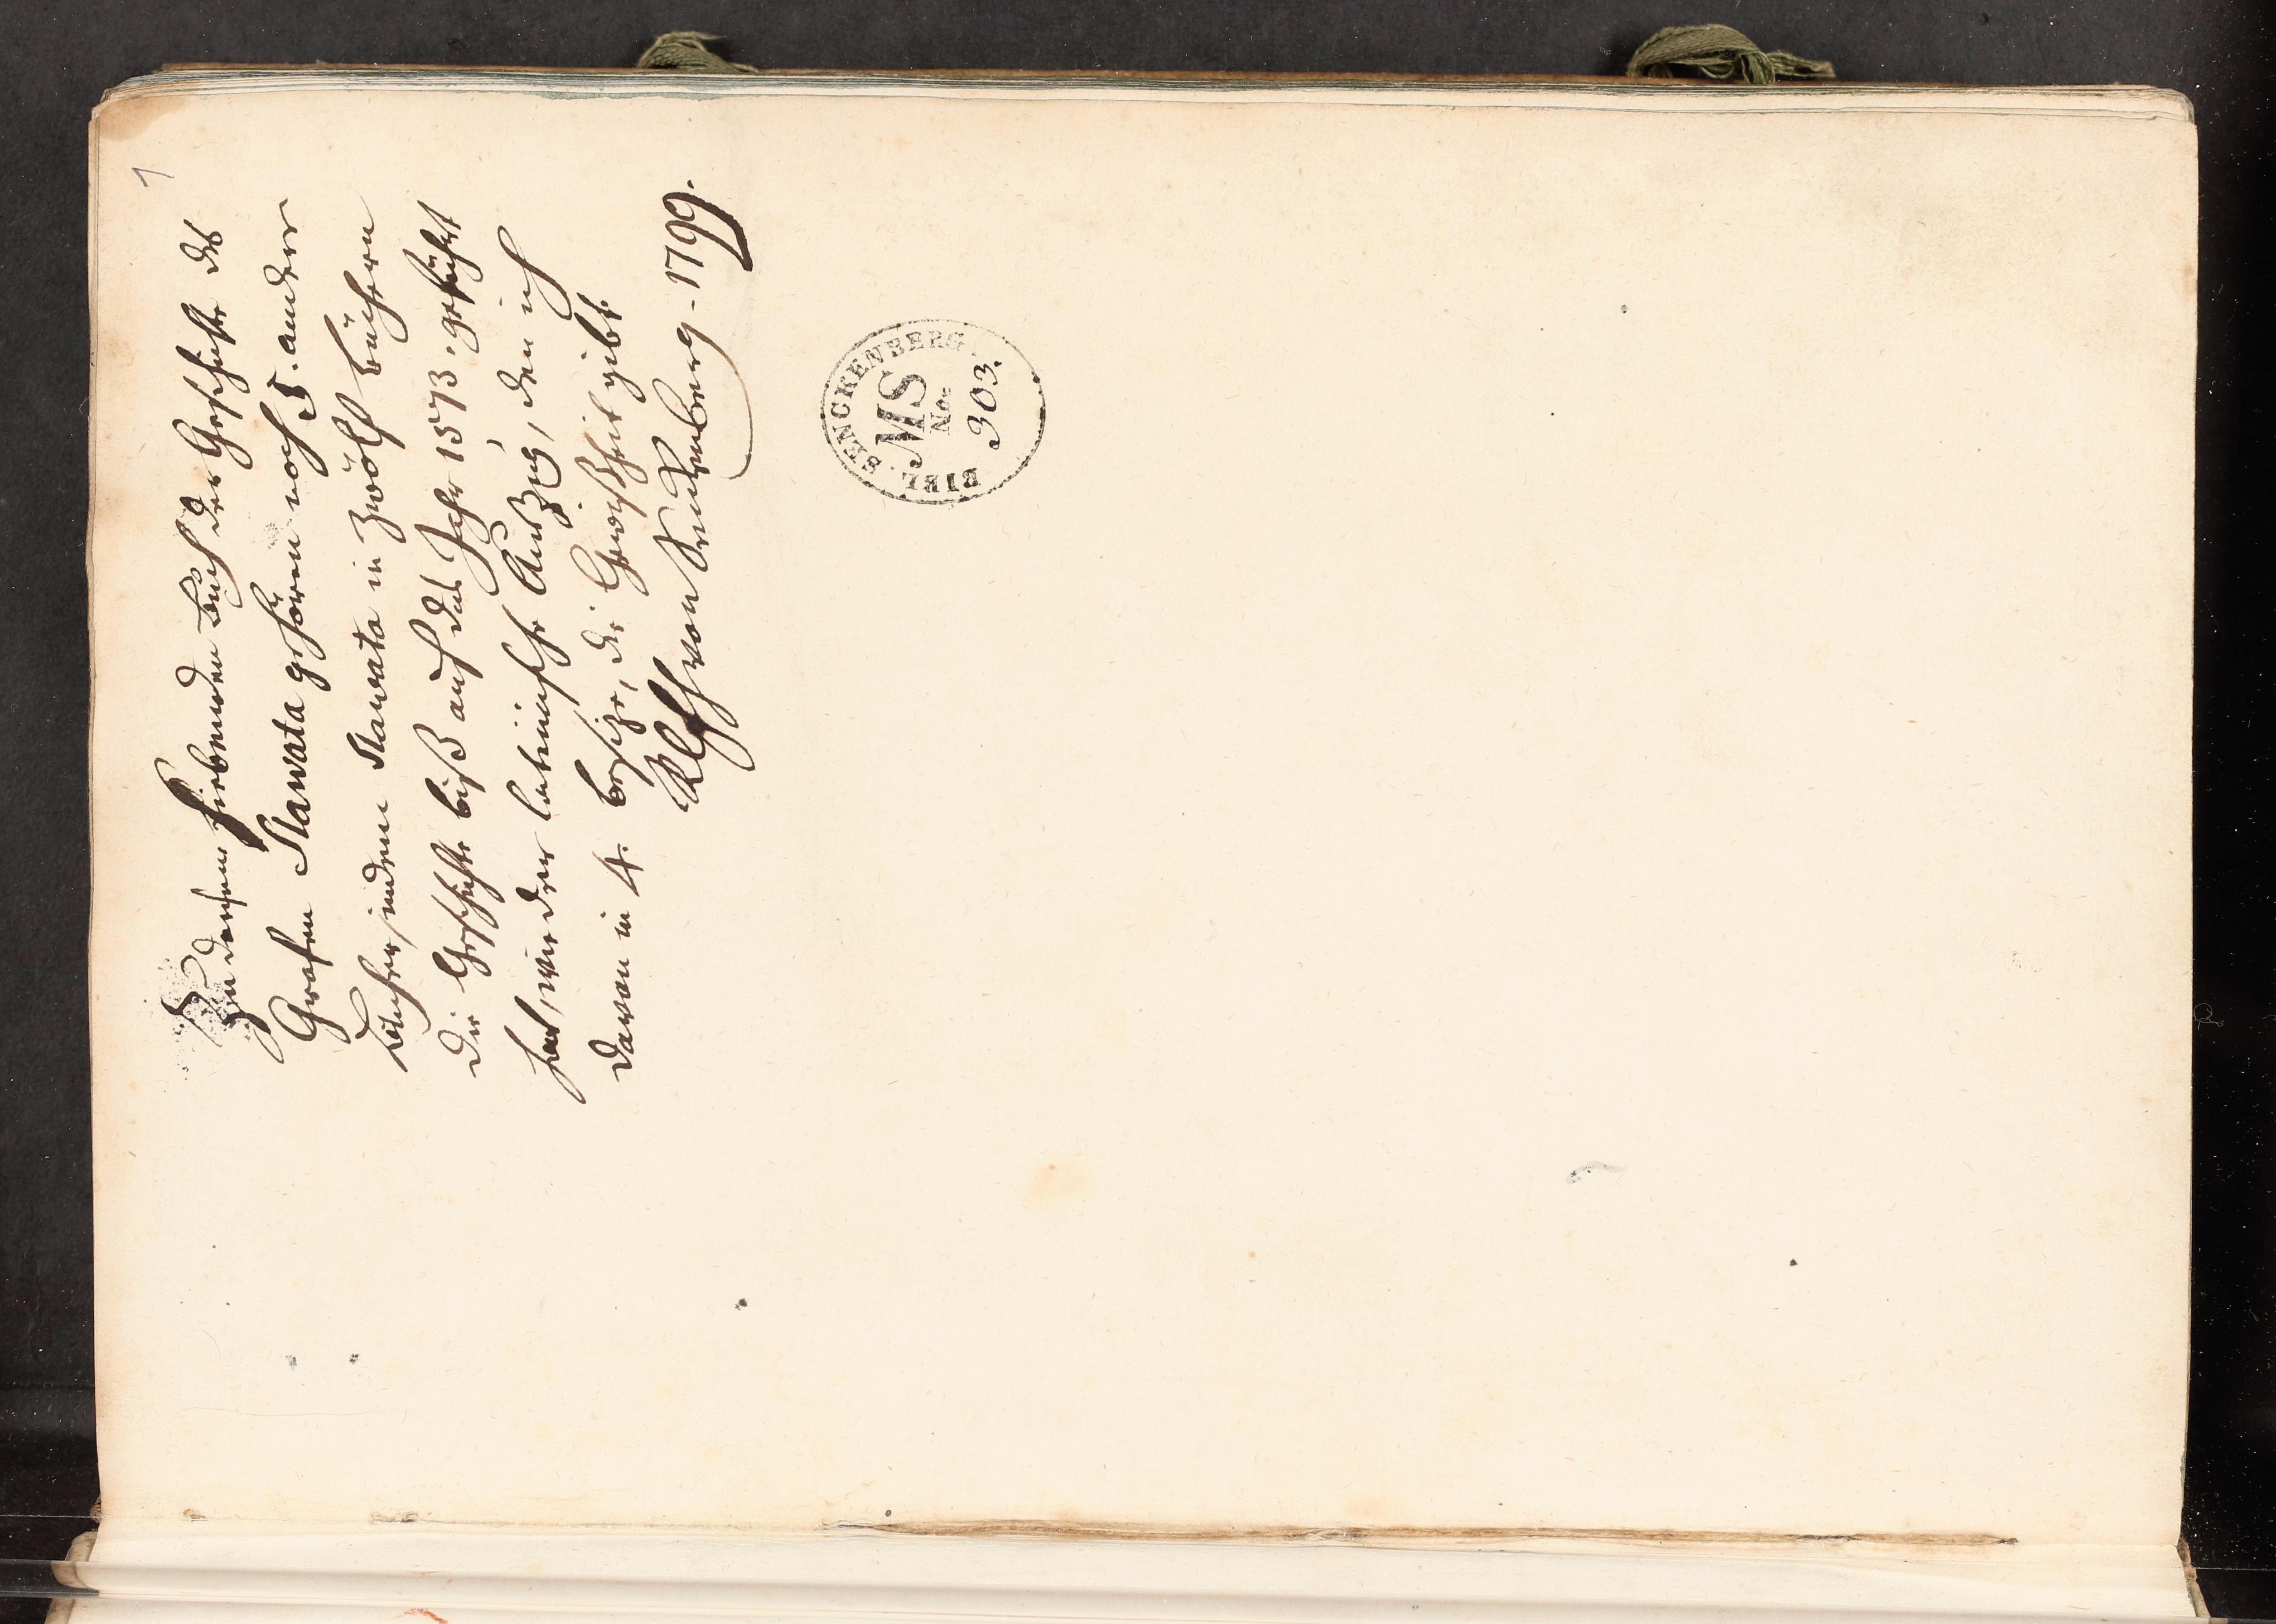 1
Zu diesem siebenden Buch der Geschichte des
Grafen Slawata gehören noch 5. andere
Bücher, indem Slawata in zwölf Büchern
die Geschichte biß auf das Jahr 1573. geführt
hat, wie der lateinische Auszug, den ich
davon in 4. besize, die Gewißheit gibt.
RCFh von Senkenberg - 1799.
BIBL. SENCKENBERG.
MS
No.
303.